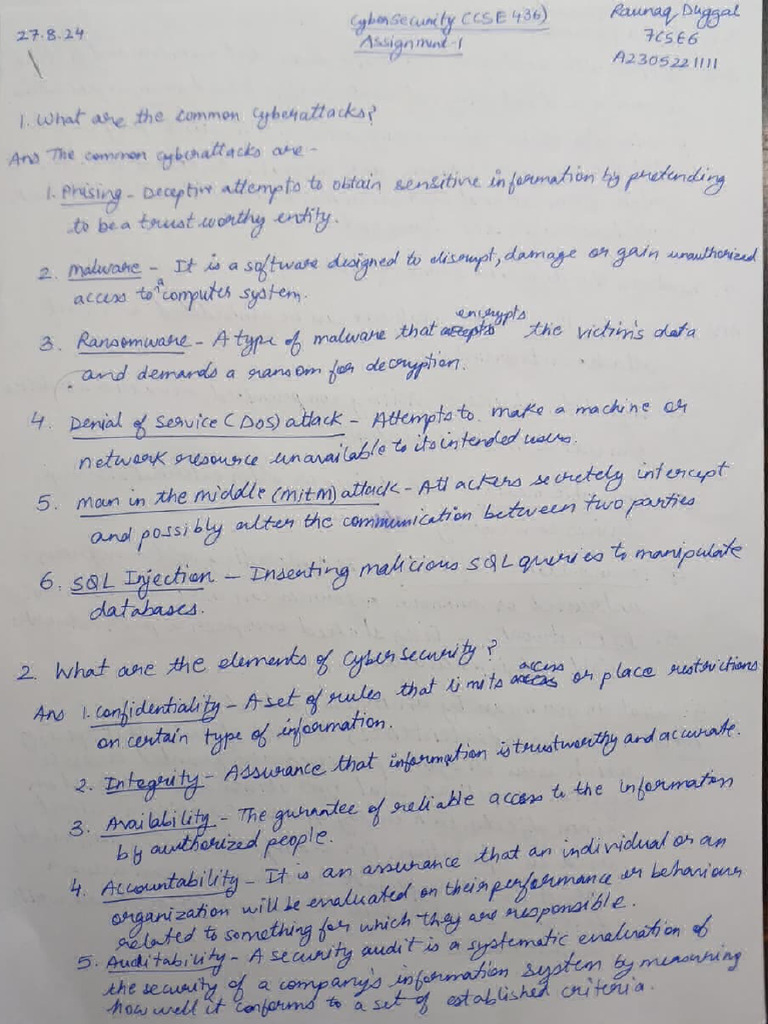 27.8.24
Cybersecurity (CSE 436)
Assignment-1
Raunaq Duggal
7CSE6
A2305221111
1. What are the common cyberattacks?
Ans The common cyberattacks are -
1. Phising - Deceptive attempts to obtain sensitive information by pretending
to be a trust worthy entity.
2. Malware - It is a software designed to disrupt, damage or gain unauthorized
access to a computer system.
3. Ransomware - A type of malware that encrypts the victim's data
and demands a ransom for decryption.
4. Denial of Service (DoS) attack - Attempts to make a machine or
network resource unavailable to its intended users.
5. Man in the middle (MitM) attack - Attackers secretely intercept
and possibly alter the communication between two parties
6. SQL Injection - Inserting malicious SQL queries to manipulate
databases.
2. What are the elements of cybersecurity?
Ans 1. Confidentiality - A set of rules that limits access or place restrictions
on certain type of information.
2. Integrity - Assurance that information is trustworthy and accurate.
3. Availability - The gurantee of reliable access to the information
by authorized people.
4. Accountability - It is an assurance that an individual or an
organization will be evaluated on their performance or behaviour
related to something for which they are responsible.
5. Auditability - A security audit is a systematic evaluation of
the security of a company's information system by measuring
how well it conforms to a set of established criteria.